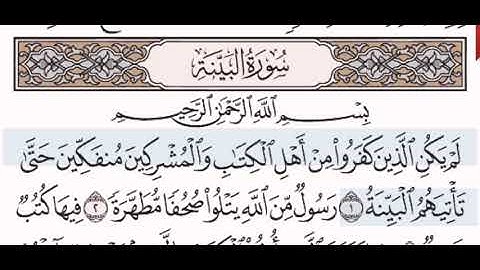 سُورَةُ البَيِّنَةِ
بِسْمِ اللَّهِ الرَّحْمَٰنِ الرَّحِيمِ
لَمْ يَكُنِ الَّذِينَ كَفَرُوا مِنْ أَهْلِ الْكِتَابِ وَالْمُشْرِكِينَ مُنفَكِّينَ حَتَّىٰ
تَأْتِيَهُمُ الْبَيِّنَةُ ١ رَسُولٌ مِّنَ اللَّهِ يَتْلُوا صُحُفًا مُّطَهَّرَةً ٢ فِيهَا كُتُبٌ